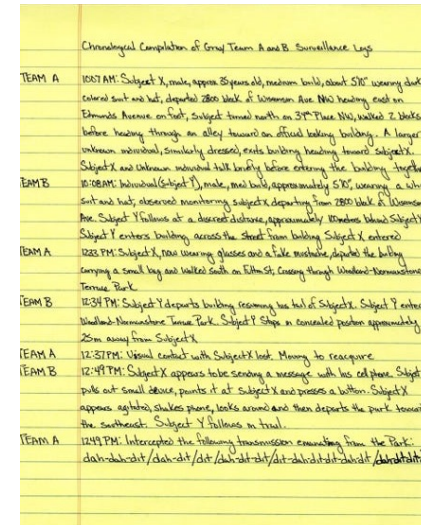 Chronological Compilation of Gray Team A and B Surveillance Logs
TEAM A 1007 AM: Subject X, male, approx 35 years old, medium build, about 5'10" wearing dark
colored suit and hat, departed 2800 block of Wisconsin Ave. NW heading east on
Edmunds Avenue on foot, subject turned north on 39th Place NW, walked 2 blocks
before heading through an alley toward an official looking building. A larger
unknown individual, similarly dressed, exits building heading toward subject X.
Subject X and unknown individual talk briefly before entering the building together
TEAM B 10:08AM: Individual (Subject Y), male, med build, approximately 5'10", wearing a
suit and hat, observed monitoring subject X departing from 2800 block of
Ave. Subject Y follows at a discreet distance, approximately behind Subject
Subject Y enters building across the street from building Subject X entered
TEAM A PM: Subject X, now wearing glasses and a fake mustache, departed the building
carrying a small bag and walked south on Fulton St, Crossing through
Terrace Park.
TEAM B 12:34 PM: Subject Y departs building resuming his tail of Subject X. Subject Y
Woodland-Normanstone Terrace Park. Subject Y Stops in concealed position approximately
25m away from Subject X
TEAM A 12:37PM: Visual contact with Subject X lost. Moving to reacquire
TEAM B 12:49 PM: Subject X appears to be sending a message with his cell phone. Subject
pulls out small device, points it at Subject X and presses a button. Subject X
appears agitated, shakes phone, looks around and then departs the park
the southeast. Subject Y follows in trail.
TEAM A 1249 PM: Intercepted the following transmission emanating from the Park:
dah-dah-dit/dah-dit/dit/dah-dit-dit/